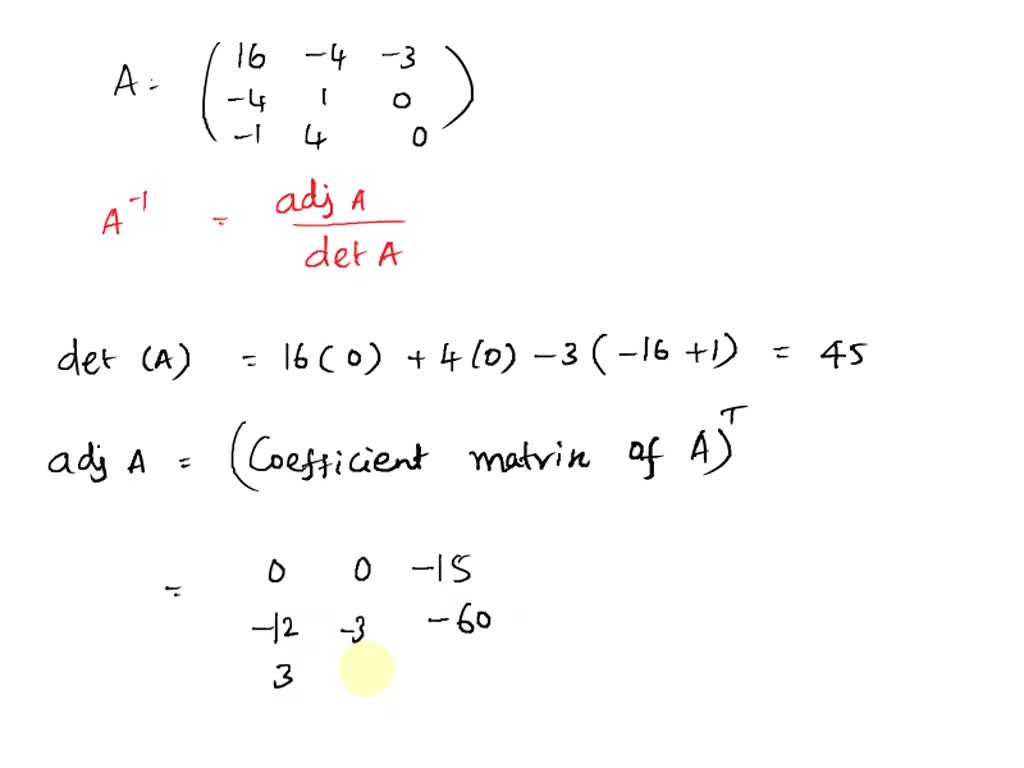 A = ( 16 -4 -3
-4 1 0
-1 4 0 )
A⁻¹ = adj A / det A
det (A) = 16 ( 0 ) + 4 (0) - 3 ( -16 + 1 ) = 45
adj A = (Coefficient matrix of A)ᵀ
= 0 0 -15
-12 -3 -60
3